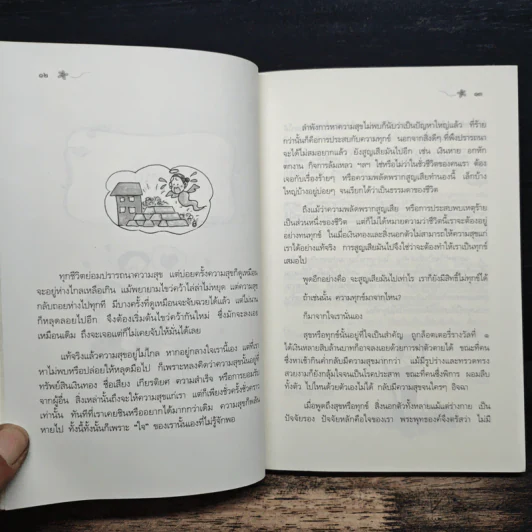 ๑๒
ทุกชีวิตย่อมปรารถนาความสุข แต่บ่อยครั้งความสุขก็ดูเหมือน
จะอยู่ห่างไกลเหลือเกิน แม้พยายามไขว่คว้าไล่ล่าไม่หยุด แต่ความสุข
กลับถอยห่างไปทุกที มีบางครั้งที่ดูเหมือนจะจับฉวยได้แล้ว แต่ไม่นาน
ก็หลุดลอยไปอีก จึงต้องเริ่มต้นไขว่คว้ากันใหม่ ซึ่งมักจะลงเอย
เหมือนเดิม ถึงจะเจอแต่ก็ไม่เคยจับให้มั่นได้เลย
แท้จริงแล้วความสุขอยู่ไม่ไกล หากอยู่กลางใจเรานี้เอง แต่ที่เรา
หาไม่พบหรือปล่อยให้หลุดมือไป ก็เพราะหลงคิดว่าความสุขนั้นอยู่ที่
ทรัพย์สินเงินทอง ชื่อเสียง เกียรติยศ ความสำเร็จ หรือการยอมรับ
จากผู้อื่น สิ่งเหล่านั้นถึงจะให้ความสุขแก่เรา แต่ก็เพียงชั่วครั้งชั่วคราว
เท่านั้น ทันทีที่เราเคยชินหรืออยากได้มากกว่าเดิม ความสุขก็กลับ
หายไป ทั้งนี้ทั้งนั้นก็เพราะ “ใจ” ของเรานั้นเองที่ไม่รู้จักพอ
๑๓
ลำพังการหาความสุขไม่พบก็นับว่าเป็นปัญหาใหญ่แล้ว ที่ร้าย
กว่านั้นก็คือการประสบกับความทุกข์ นอกจากสิ่งดีๆ ที่พึงปรารถนา
จะได้ไม่สมอยากแล้ว ยังสูญเสียมันไปอีก เช่น เงินหาย อกหัก
ตกงาน กิจการล้มเหลว ฯลฯ ใช่หรือไม่ว่าในชั่วชีวิตของคนเรา ต้อง
เจอกับเรื่องร้ายๆ หรือความพลัดพรากสูญเสียทำนองนี้ เล็กบ้าง
ใหญ่บ้างอยู่บ่อยๆ จนเรียกได้ว่าเป็นธรรมดาของชีวิต
ถึงแม้ว่าความพลัดพรากสูญเสีย หรือการประสบพบเหตุร้าย
เป็นส่วนหนึ่งของชีวิต แต่ก็ไม่ได้หมายความว่าชีวิตนี้เราจะต้องอยู่
อย่างทนทุกข์ ในเมื่อเงินทองและสิ่งนอกตัวไม่สามารถให้ความสุขแก่
เราได้อย่างแท้จริง การสูญเสียมันไปจึงใช่ว่าจะต้องทำให้เราเป็นทุกข์
เสมอไป
พูดอีกอย่างคือ จะสูญเสียมันไปเท่าไร เราก็ยังมีสิทธิ์ไม่ทุกข์ได้
ถ้าเช่นนั้น ความทุกข์มาจากไหน?
ก็มาจากใจเรานั่นเอง
สุขหรือทุกข์นั้นอยู่ที่ใจเป็นสำคัญ ถูกล็อตเตอรี่รางวัลที่ ๑
ได้เงินหลายสิบล้านบาทก็อาจลงเอยด้วยการฆ่าตัวตายได้ ขณะที่คน
ซึ่งหาเช้ากินค่ำกลับมีความสุขมากกว่า แม้มีรูปร่างและทรวดทรง
สวยงามก็ยังกลุ้มใจจนเป็นโรคประสาท ขณะที่คนซึ่งพิการ ผอมลีบ
ทั้งตัว ไปไหนด้วยตัวเองไม่ได้ กลับมีความสุขจนใครๆ อิจฉา
เมื่อพูดถึงสุขหรือทุกข์ สิ่งนอกตัวทั้งหลายแม้แต่ร่างกาย เป็น
ปัจจัยรอง ปัจจัยหลักคือใจของเรา พระพุทธองค์จึงตรัสว่า ไม่มี